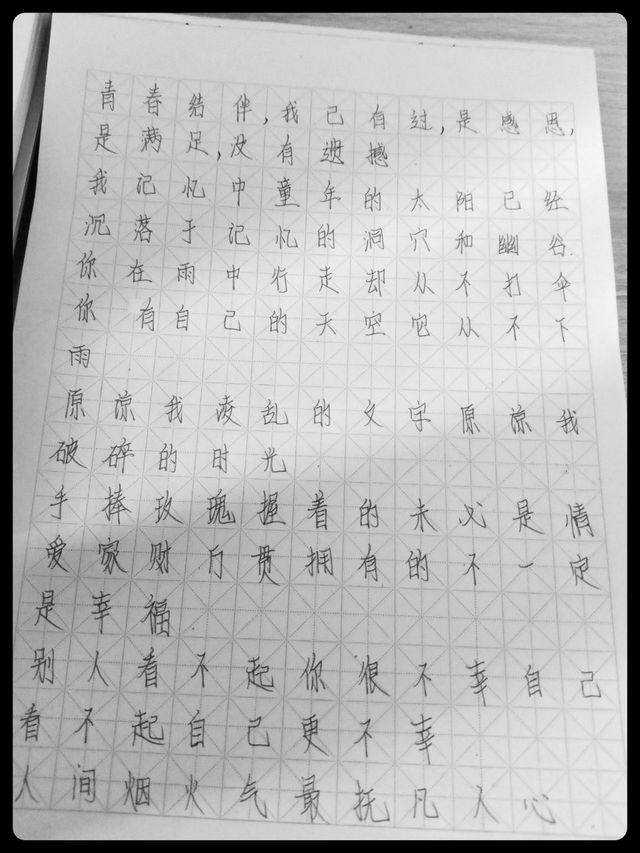 青春结伴,我己有过,是感恩,
是满足,没有遗憾
我记忆中童年的太阳已经
沉落于记忆的洞穴和幽谷
你在雨中行走却从不打伞
你有自己的天空它从不下
雨
原谅我凌乱的文字原谅我
破碎的时光
手捧玫瑰握着的未必是情
爱家财万贯拥有的不一定
是幸福
别人看不起你很不幸自己
看不起自己更不幸
人间烟火气最抚凡人心